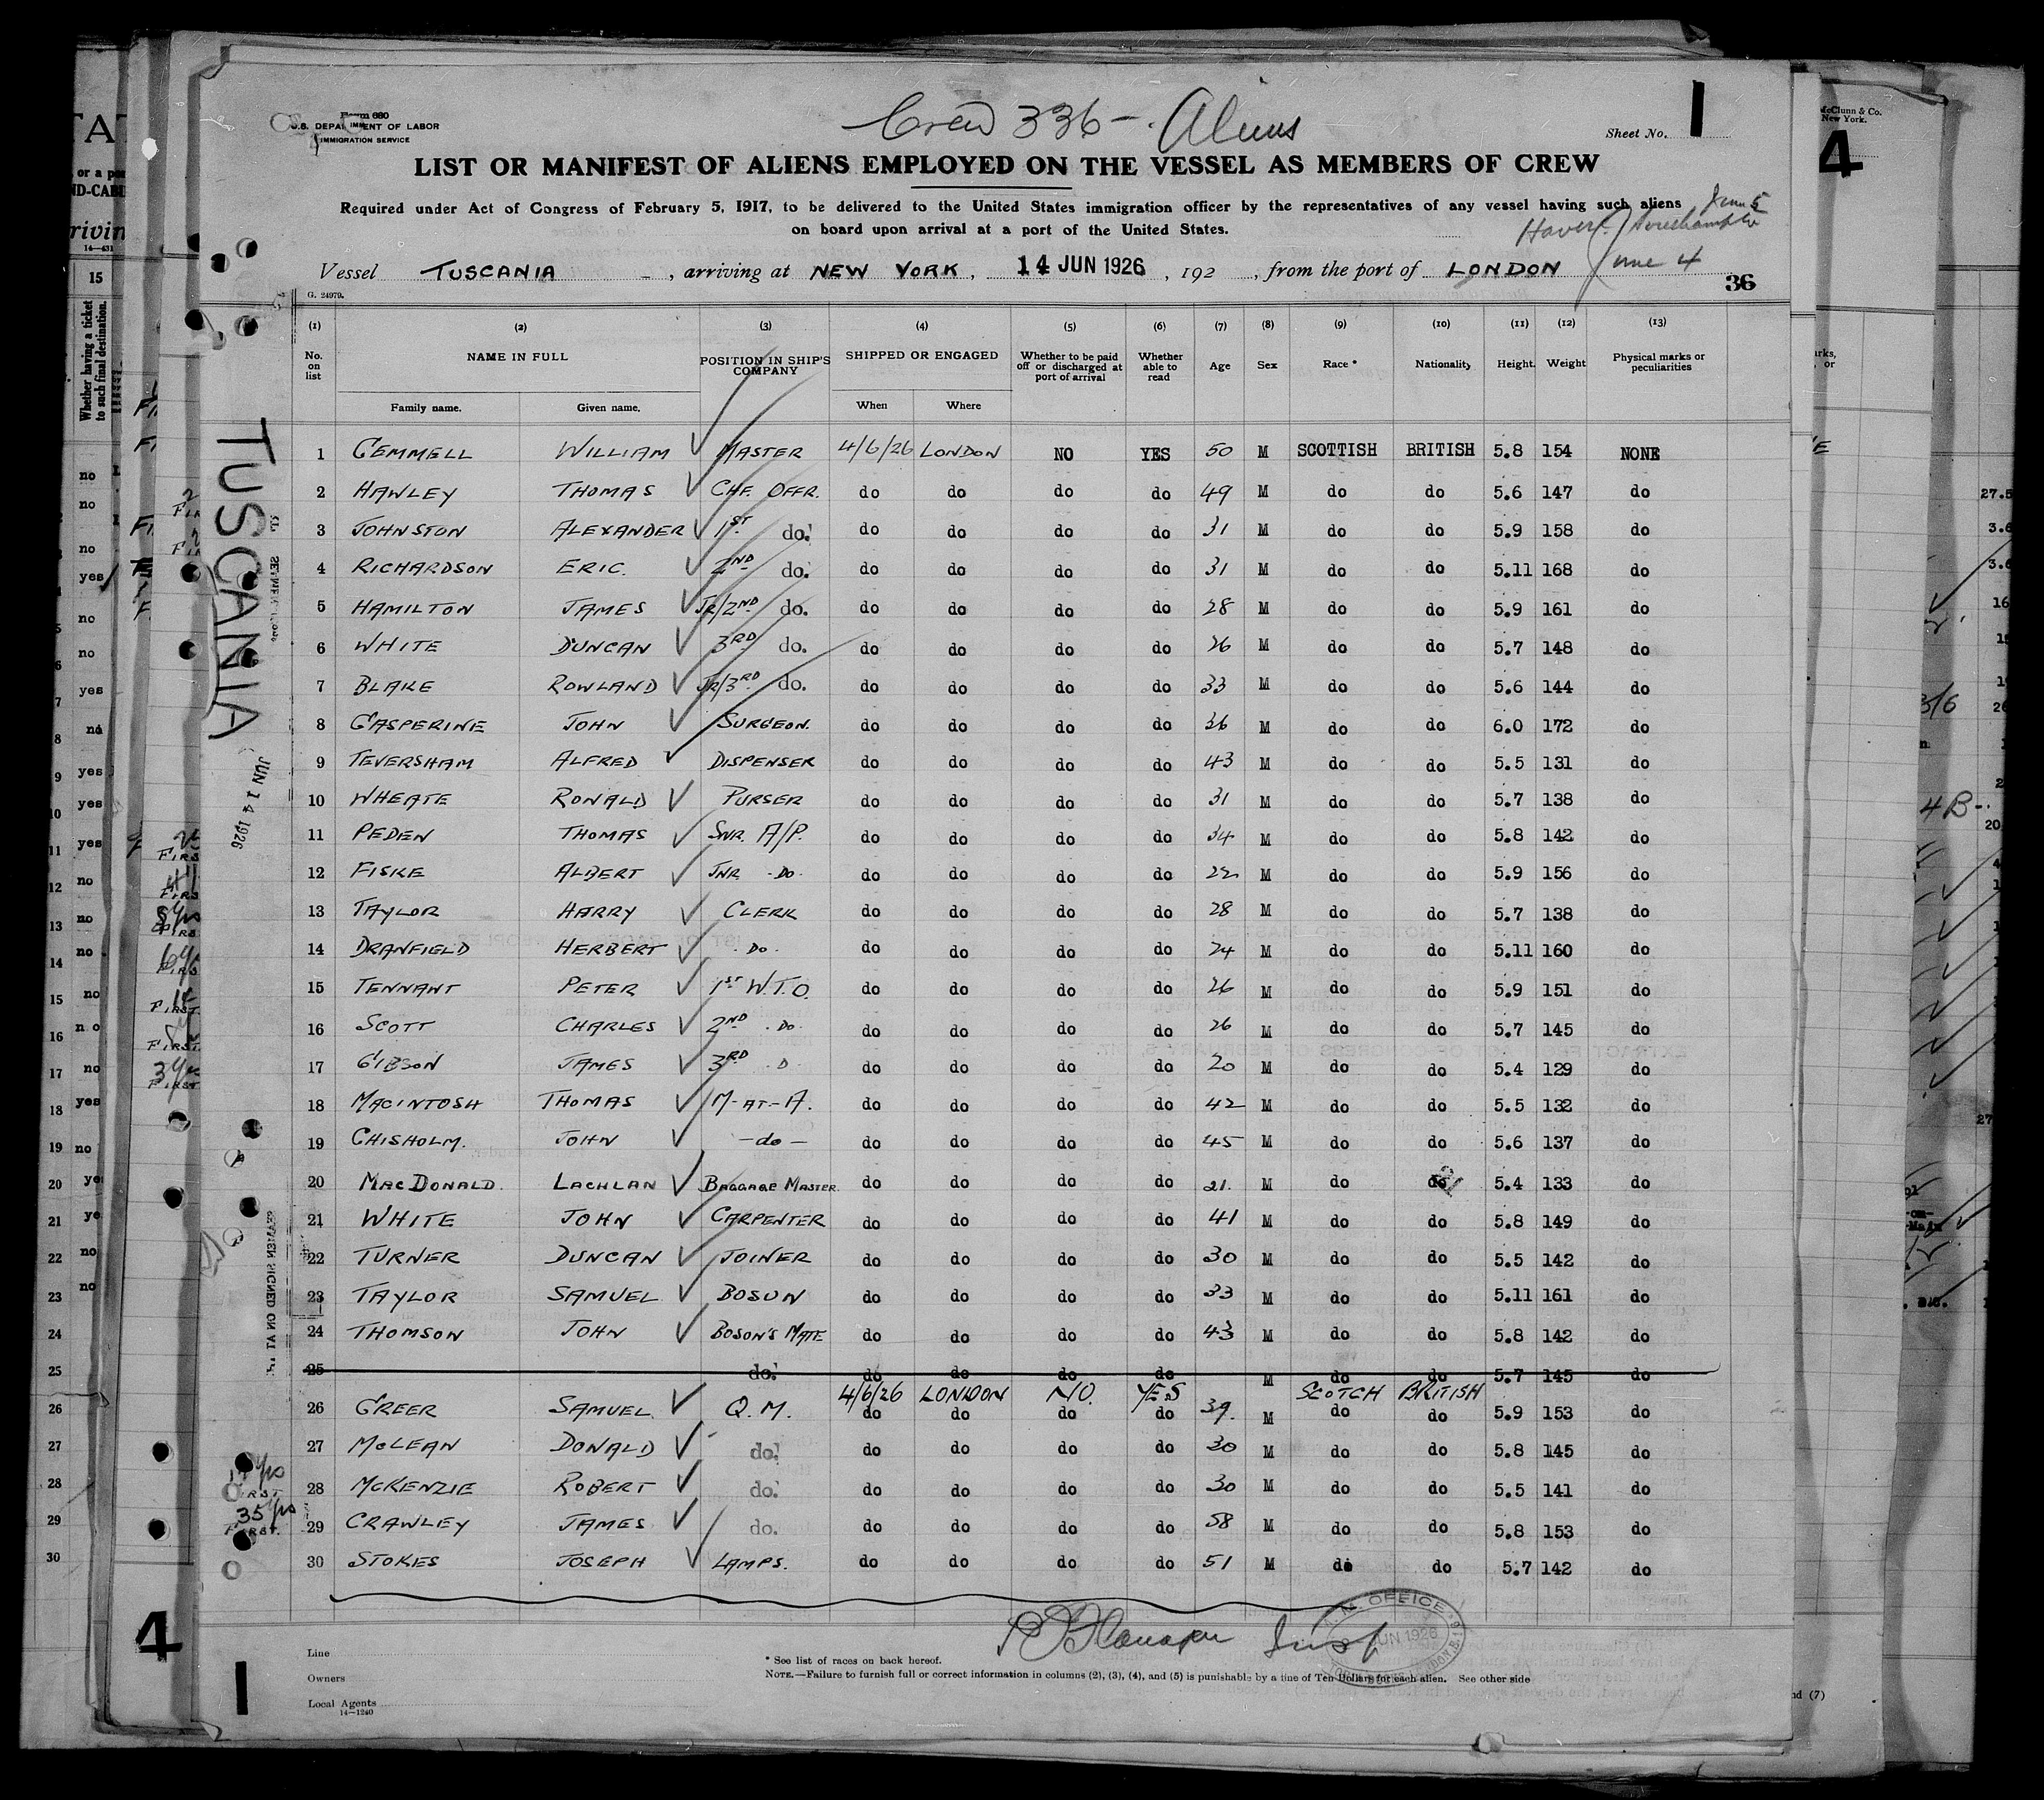 Crew 336 - Aliens
Form 680
U.S. DEPARTMENT OF LABOR
IMMIGRATION SERVICE
Sheet No. 1
LIST OR MANIFEST OF ALIENS EMPLOYED ON THE VESSEL AS MEMBERS OF CREW
Required under Act of Congress of February 5, 1917, to be delivered to the United States immigration officer by the representatives of any vessel having such aliens
on board upon arrival at a port of the United States.
June 5
June 4
Vessel TUSCANIA, arriving at NEW YORK, 14 JUN 1926, 192 , from the port of LONDON
36
G. 24979.
(1) (2) (3) (4) (5) (6) (7) (8) (9) (10) (11) (12) (13)
No. on list NAME IN FULL POSITION IN SHIP'S COMPANY SHIPPED OR ENGAGED Whether to be paid off or discharged at port of arrival Whether able to read Age Sex Race * Nationality Height. Weight Physical marks or peculiarities
Family name. Given name. When Where
1 GEMMELL WILLIAM MASTER 4/6/26 LONDON NO YES 50 M SCOTTISH BRITISH 5.8 154 NONE
2 HAWLEY THOMAS CHF. OFFR. do do do do 49 M do do 5.6 147 do
3 JOHNSTON ALEXANDER 1ST do. do do do do 31 M do do 5.9 158 do
4 RICHARDSON ERIC. 2ND do. do do do do 31 M do do 5.11 168 do
5 HAMILTON JAMES JR/2ND do. do do do do 28 M do do 5.9 161 do
6 WHITE DUNCAN 3RD do. do do do do 26 M do do 5.7 148 do
7 BLAKE ROWLAND JR/3RD do. do do do do 33 M do do 5.6 144 do
8 GASPERINE JOHN SURGEON. do do do do 26 M do do 6.0 172 do
9 TEVERSHAM ALFRED DISPENSER do do do do 43 M do do 5.5 131 do
10 WHEATE RONALD PURSER do do do do 31 M do do 5.7 138 do
11 PEDEN THOMAS SNR. A/P. do do do do 34 M do do 5.8 142 do
12 FISKE ALBERT JNR. -DO- do do do do 22 M do do 5.9 156 do
13 TAYLOR HARRY CLERK do do do do 28 M do do 5.7 138 do
14 DRANFIELD HERBERT - DO - do do do do 24 M do do 5.11 160 do
15 TENNANT PETER 1ST W.T.O. do do do do 26 M do do 5.9 151 do
16 SCOTT CHARLES 2ND - DO - do do do do 26 M do do 5.7 145 do
17 GIBSON JAMES 3RD - D - do do do do 20 M do do 5.4 129 do
18 MACINTOSH THOMAS M-AT-A. do do do do 42 M do do 5.5 132 do
19 CHISHOLM. JOHN -do- do do do do 45 M do do 5.6 137 do
20 MACDONALD. LACHLAN BAGGAGE MASTER do do do do 21. M do do 5.4 133 do
21 WHITE JOHN CARPENTER do do do do 41 M do do 5.8 149 do
22 TURNER DUNCAN JOINER do do do do 30 M do do 5.5 142 do
23 TAYLOR SAMUEL BOSUN do do do do 33 M do do 5.11 161 do
24 THOMSON JOHN BOSON'S MATE do do do do 43 M do do 5.8 142 do
25 do. do do do do M do do 5.7 145 do
4/6/26 LONDON NO. YES SCOTCH BRITISH
26 GREER SAMUEL Q.M. do do do do 39. M do do 5.9 153 do
27 MCLEAN DONALD do. do do do do 30 M do do 5.8 145 do
28 MCKENZIE ROBERT do. do do do do 30 M do do 5.5 141 do
29 CRAWLEY JAMES do. do do do do 58 M do do 5.8 153 do
30 STOKES JOSEPH LAMPS. do do do do 51 M do do 5.7 142 do
Line
Owners
Local Agents
14-1240
* See list of races on back hereof.
NOTE.—Failure to furnish full or correct information in columns (2), (3), (4), and (5) is punishable by a fine of Ten Dollars for each alien. See other side
TUSCANIA
JUN 14 1926
1
4
4
McClunn & Co.
New York.